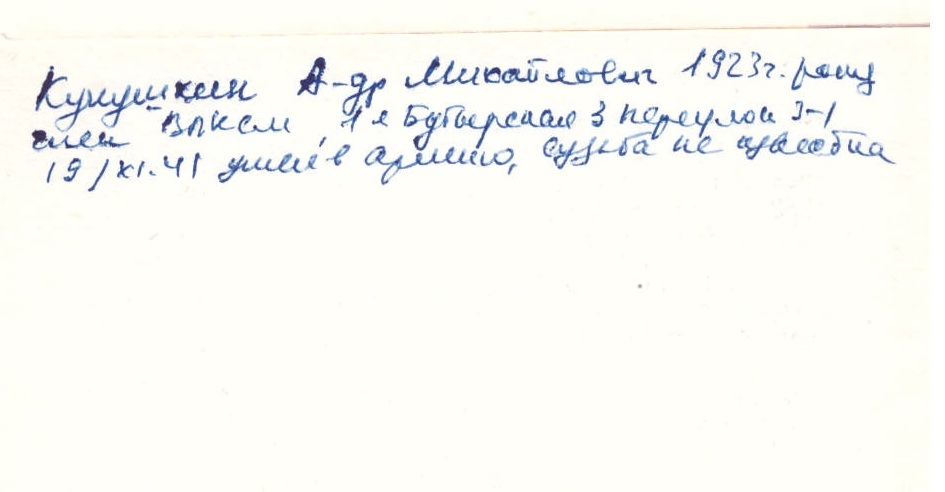 Кукушкин А-др Михайлович 1923г. рожд
член ВЛКСМ, 1я Бутырская 3 переулок 3-1
19/XI.41 ушел в армию, судьба не известна